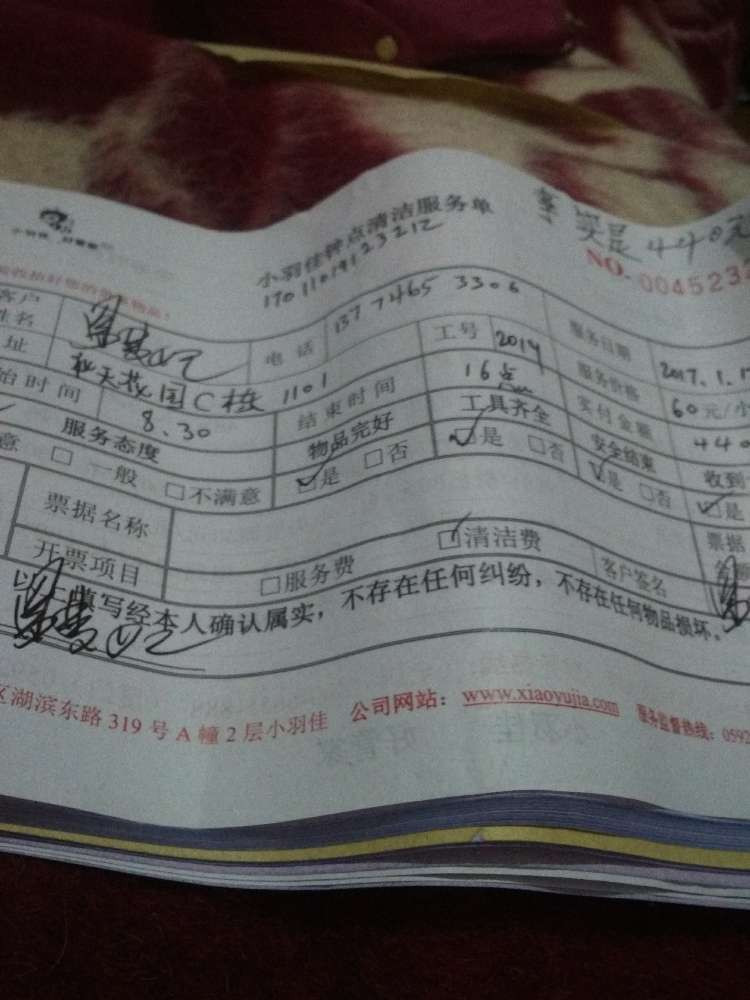 小羽佳 好管家
小羽佳钟点清洁服务单
17011019123212
实足440元
NO. 004523
客户姓名 电话 137 7465 3306 服务日期 2017.1.1
址 C栋 1101 工号 2014 服务价格 60元/小
始时间 8.30 结束时间 16点 实付金额 440
服务态度 物品完好 工具齐全 安全结束 收到
意 □一般 □不满意 ☑是 □否 ☑是 □否 ☑是 □否 ☑是
票据名称 票据
开票项目 □服务费 ☑清洁费 客户签名
以上填写经本人确认属实，不存在任何纠纷，不存在任何物品损坏。
区湖滨东路 319 号 A 幢 2 层小羽佳 公司网站：www.xiaoyujia.com 服务监督热线：0592